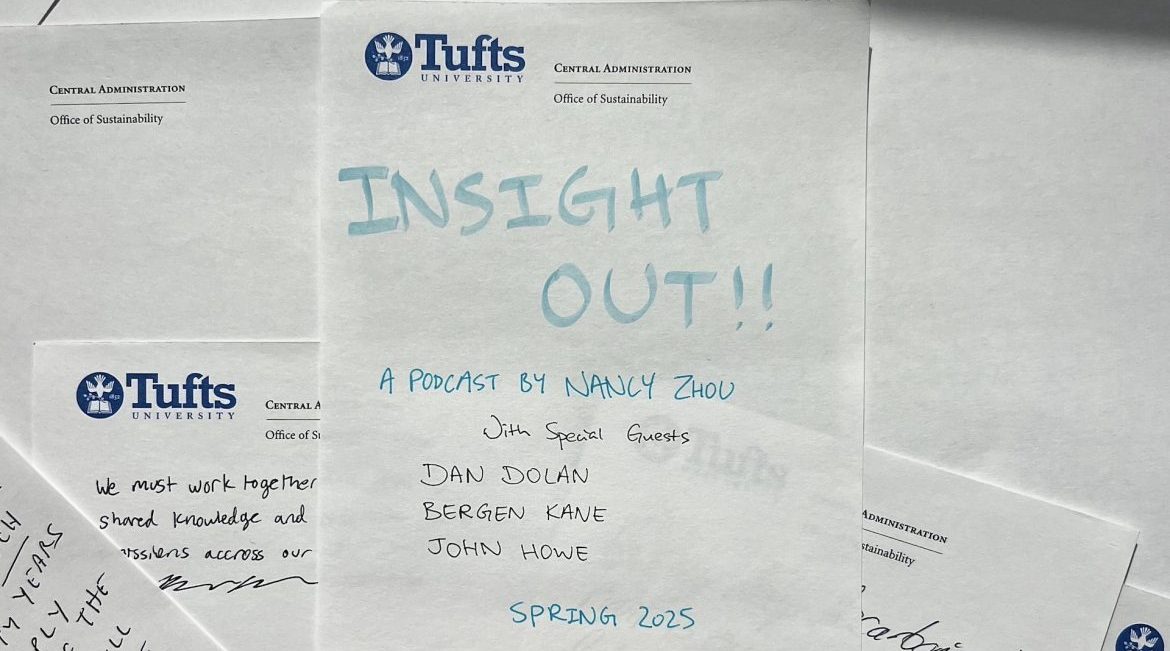 CENTRAL ADMINISTRATION
Office of Sustainability
Tufts
UNIVERSITY
CENTRAL ADMINISTRATION
Office of Sustainability
INSIGHT
OUT!!
A PODCAST BY NANCY ZHOU
With Special Guests
DAN DOLAN
BERGEN KANE
JOHN HOWE
SPRING 2025
Tufts
UNIVERSITY
CENTRAL A
Office of Su
We must work together
shared knowledge and
accross our
YEARS
THE
ADMINISTRATION
stainability